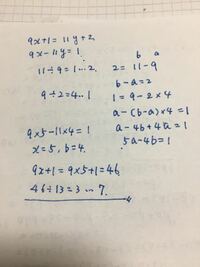 9x+1=11y+2
9x-11y=1
11÷9=1…2
9÷2=4…1
9×5-11×4=1
x=5, b=4.
9x+1=9×5+1=46
46÷13=3…7.
b a
2=11-9
b-a=2
1=9-2×4
a-(b-a)×4=1
a-4b+4a=1
5a-4b=1